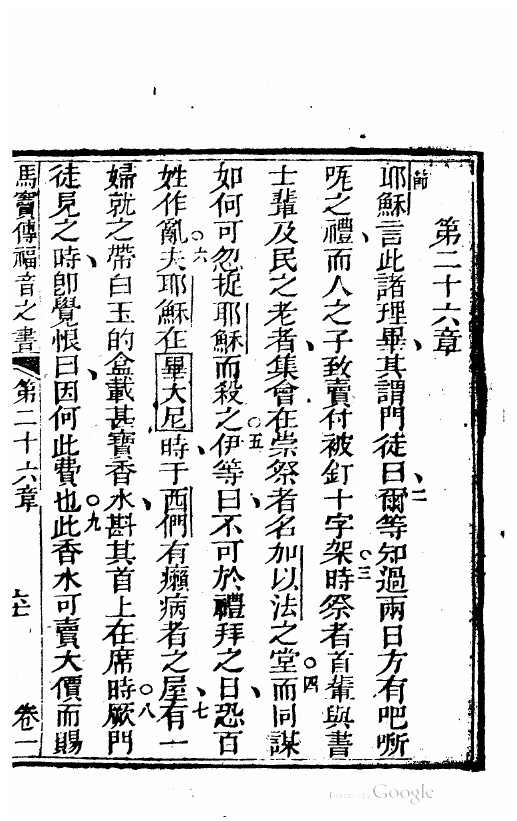 第二十六章
節
耶穌言此諸理畢、其謂門徒曰、二爾等知過兩日方有吧㗭
呃之禮、而人之子致賣付被釘十字架。三時祭者首輩與書
士輩及民之老者、集會在崇祭者名加以法之堂。四而同謀
如何可忽捉耶穌而殺之。五伊等曰、不可於禮拜之日、恐百
姓作亂。六夫耶穌在畢大尼時、于西們有癩病者之屋、七有一
婦就之、帶白玉的盒載甚寶香水、斟其首上在席時。八厥門
徒見之時、卽覺恨曰、因何此費也。九此香水可賣大價而賜
馬寶傳福音之書 第二十六章 卷一
Digitized by Google